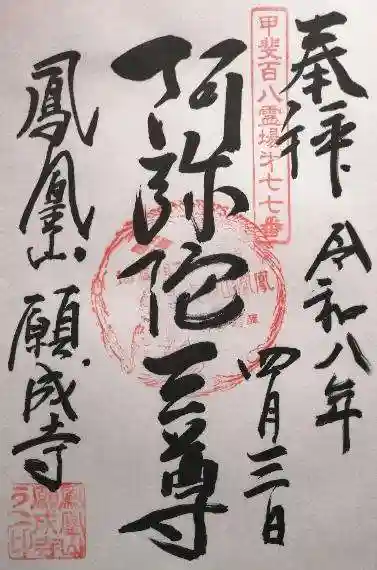 奉拝
甲斐百八霊場第七七番
令和八年
四月三日
阿弥陀三尊
鳳凰山
願成寺